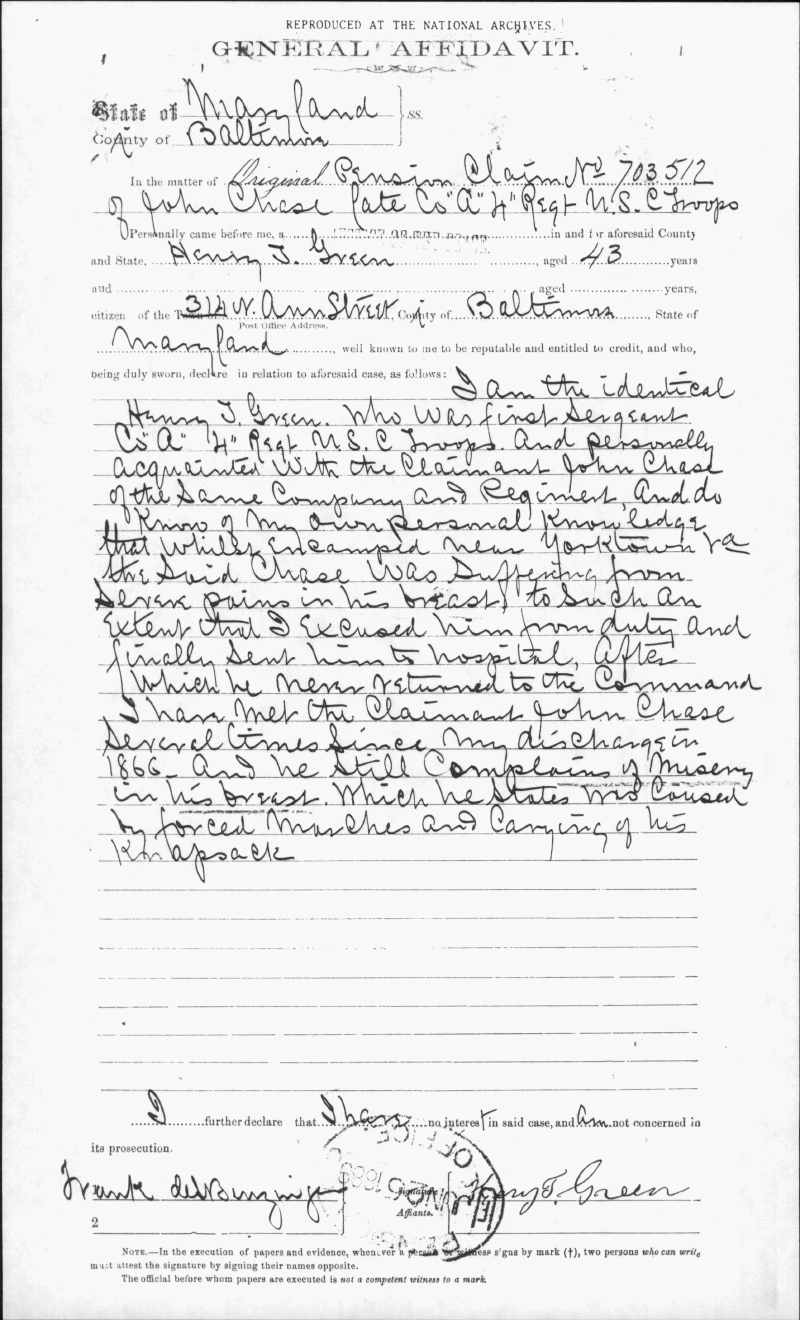 REPRODUCED AT THE NATIONAL ARCHIVES.
GENERAL AFFIDAVIT.
State of Maryland } ss.
County of Baltimore
In the matter of Original Pension Claim No 703512
of John Chase late Co "A" 4" Regt U.S.C Troops
Personally came before me, a in and for aforesaid County
and State, Henry T. Green, aged 43 years
and aged years,
citizen of the 314 N. Ann Street, County of Baltimore, State of
Post Office Address.
Maryland, well known to me to be reputable and entitled to credit, and who,
being duly sworn, declare in relation to aforesaid case, as follows: I am the identical
Henry T. Green. Who Was first Sergeant
Co "A" "4" Regt U.S. C Troops. And personally
acquainted With the Claimant John Chase
of the Same Company and Regiment, And do
Know of My Own personal Knowledge
that Whilst encamped near Yorktown Va
the Said Chase Was Suffering from
Severe pains in his breast, to Such an
Extent that I Excused him from duty and
finally Sent him to hospital, After
Which he Never returned to the Command
I have Met the Claimant John Chase
Several times Since My discharge in
1866 - And he Still Complains of Misery
in his breast. Which he States Was Caused
by forced Marches and Carying of his
Knapsack
I further declare that I have no interest in said case, and am not concerned in
its prosecution.
Frank Signature of Affiants. Henry T. Green
2
NOTE.—In the execution of papers and evidence, whenever a person or witness signs by mark (†), two persons who can write
must attest the signature by signing their names opposite.
The official before whom papers are executed is not a competent witness to a mark.